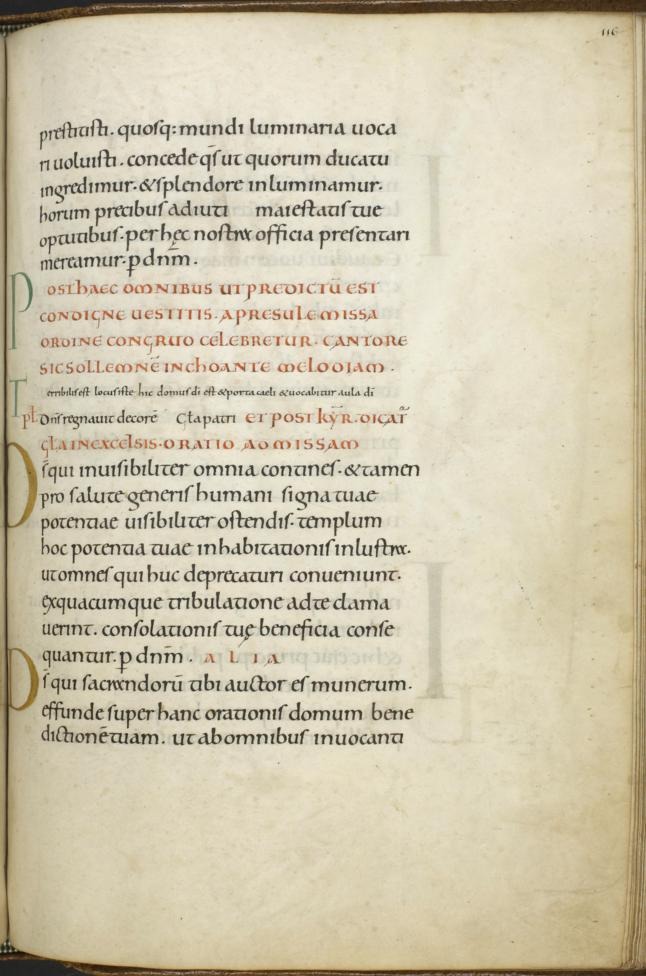 116
prestitisti. quosq: mundi luminaria uoca
ri uoluisti. concede qs̄ ut quorum ducatu
ingredimur. & splendore inluminamur.
horum precibus adiuti maiestatis tue
optutibus. per hęc nostra officia presentari
mereamur. p̄ dnm̄.
POST HAEC OMNIBUS UT PREDICTŪ EST
CONDIGNE UESTITIS. A PRESULE MISSA
ORDINE CONGRUO CELEBRETUR. CANTORE
SIC SOLLEMNĒ INCHOANTE MELODIAM.
Terribilis est locus iste hic domus dī est & porta caeli & uocabitur aula dī
ps̄. Dns̄ regnauit decorē Gl̄a patri ET POST KYR̄. DICAT̄
GL̄A IN EXCELSIS. ORATIO AD MISSAM
Ds̄ qui inuisibiliter omnia contines. & tamen
pro salute generis humani signa tuae
potentiae uisibiliter ostendis. templum
hoc potentia tuae inhabitationis inlustra.
ut omnes qui huc deprecaturi conueniunt.
ex quacumque tribulatione ad te clama
uerint. consolationis tuę beneficia conse
quantur. p̄ dnm̄. ALIA
Ds̄ qui sacrandorū tibi auctor es munerum.
effunde super hanc orationis domum bene
dictionē tuam. ut ab omnibus inuocanti